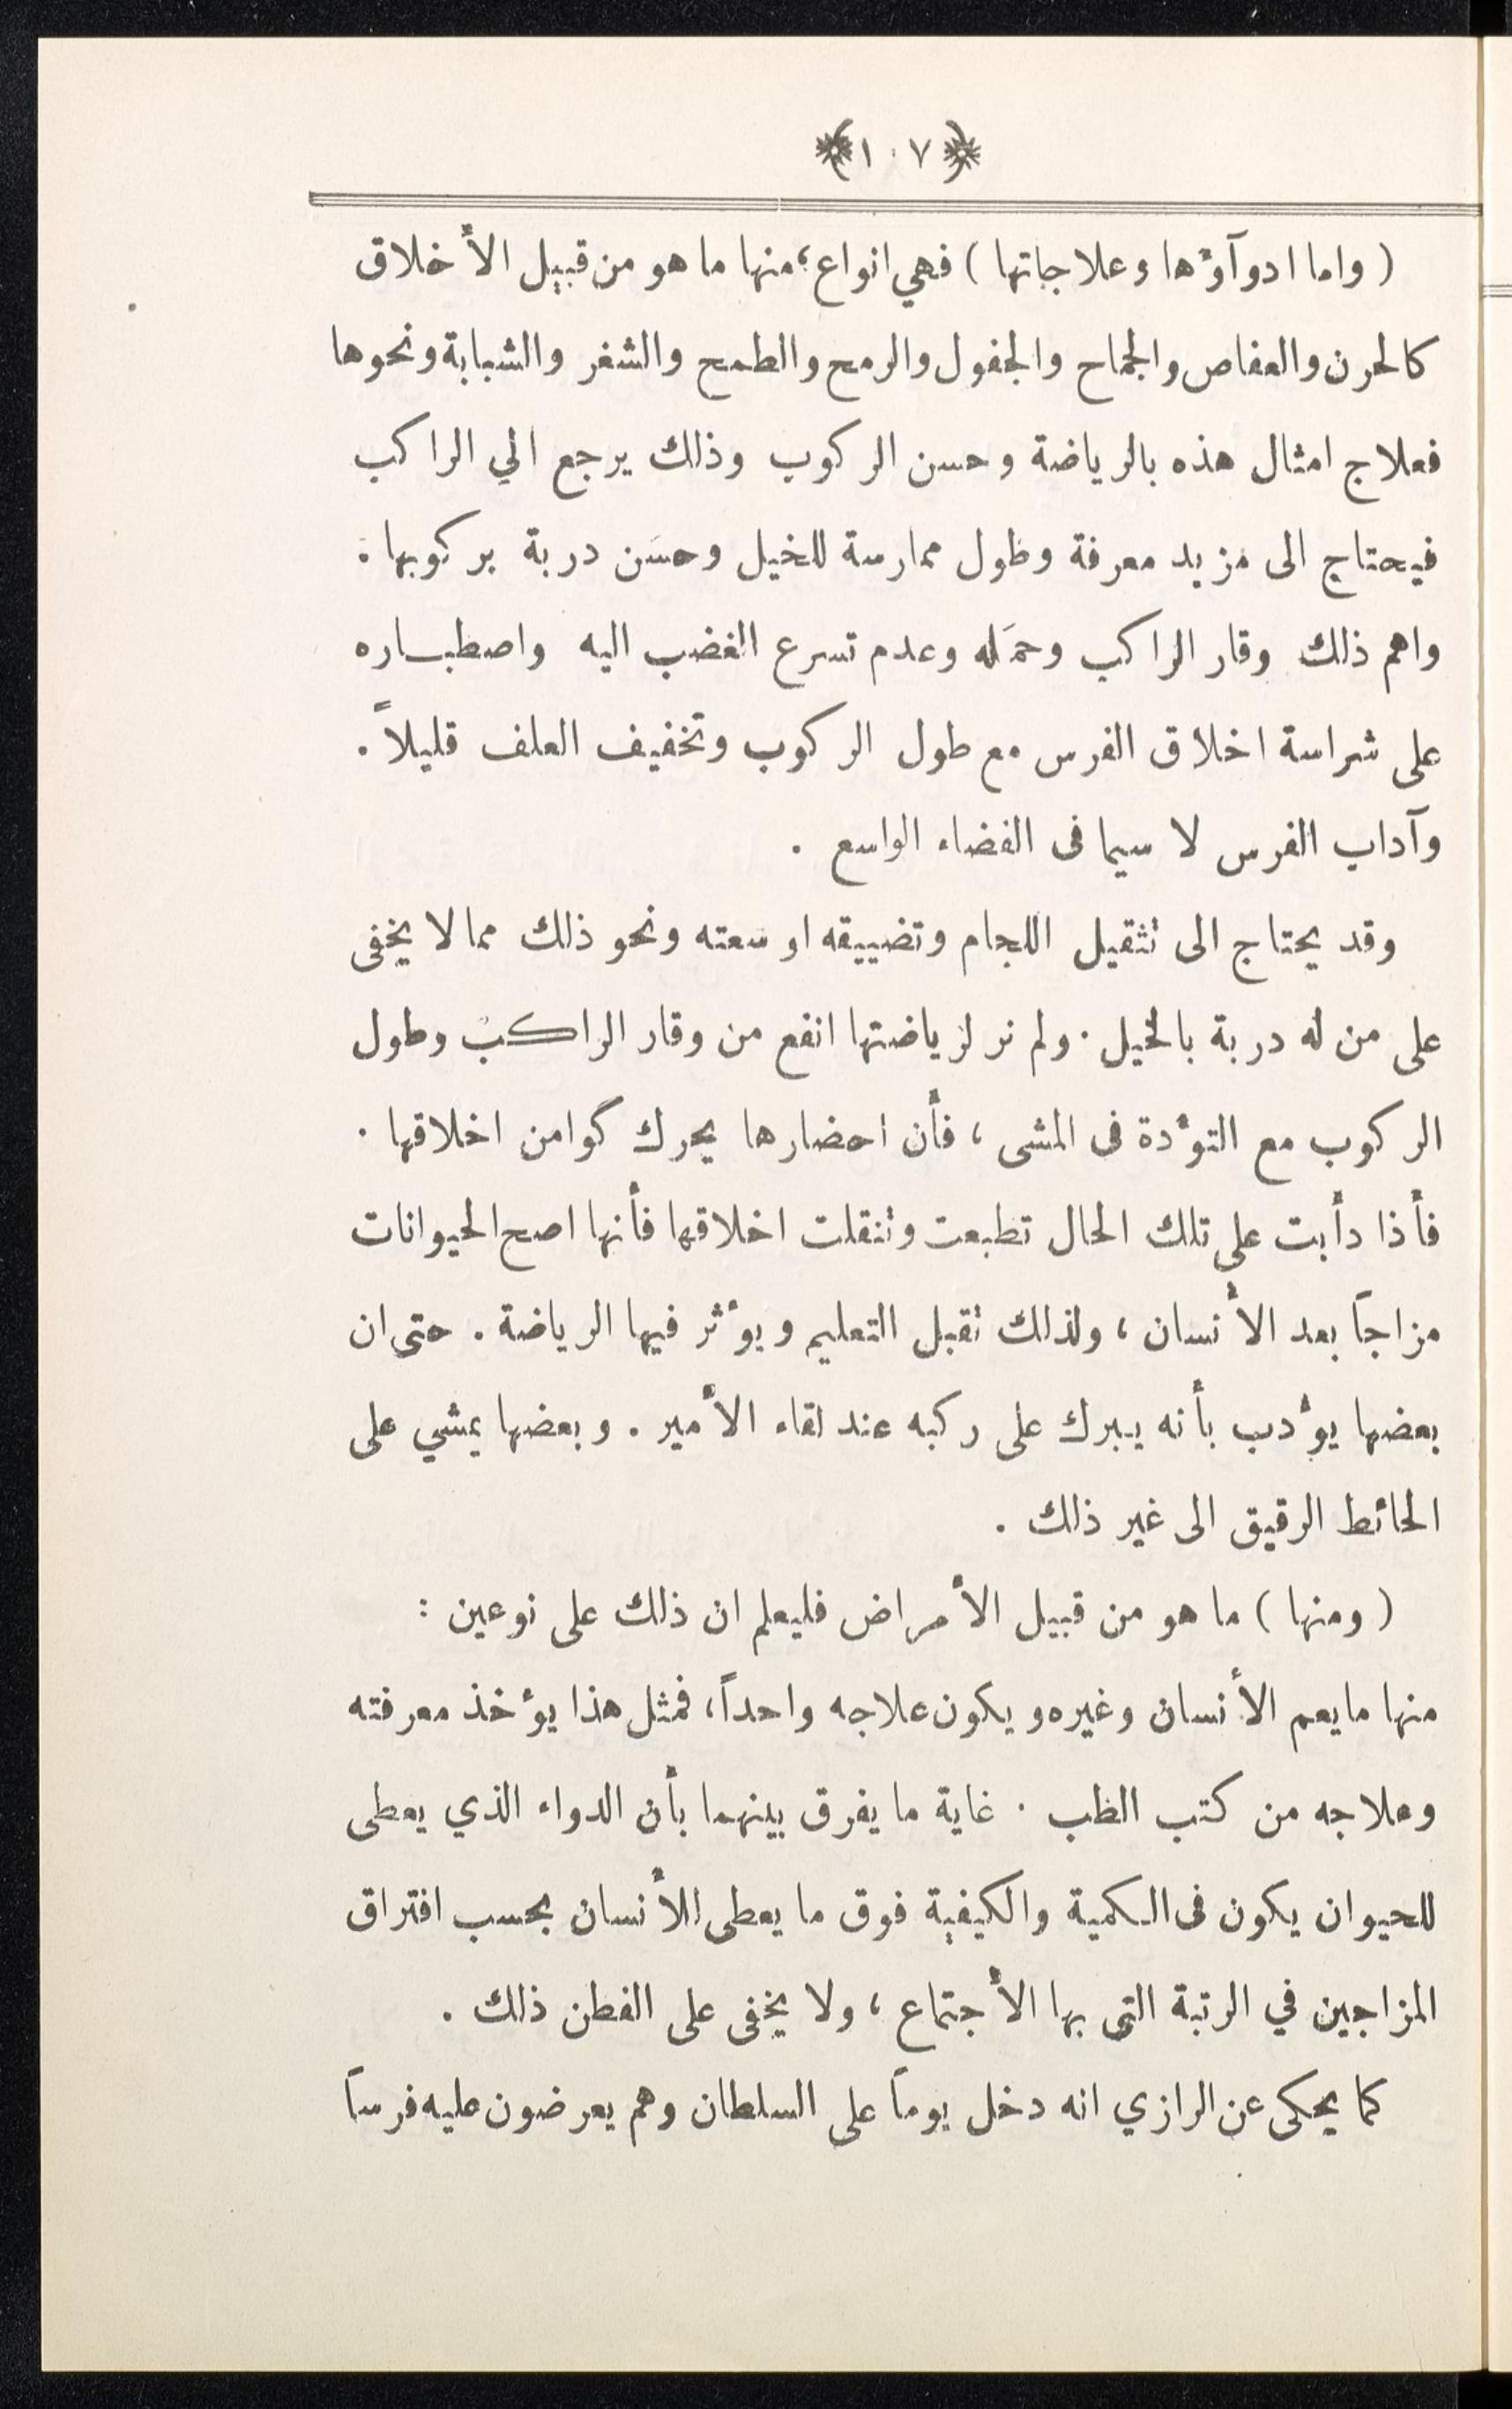 ﴿١٠٧﴾
( واما ادوآؤها وعلاجاتها ) فهي انواع ؛ منها ما هو من قبيل الأخلاق
كالحرن والعفاص والجماح والجفول والرمح والطمح والشغر والشبابة ونحوها
فعلاج امثال هذه بالرياضة وحسن الركوب وذلك يرجع الي الراكب
فيحتاج الى مزيد معرفة وطول ممارسة للخيل وحسَن دربة بركوبها .
واهم ذلك وقار الراكب وحمَله وعدم تسرع الغضب اليه واصطباره
على شراسة اخلاق الفرس مع طول الركوب وتخفيف العلف قليلاً .
وآداب الفرس لا سيما فى الفضاء الواسع .
وقد يحتاج الى تثقيل اللجام وتضييقه او سعته ونحو ذلك مما لا يخفى
على من له دربة بالخيل . ولم نر لرياضتها انفع من وقار الراكب وطول
الركوب مع التوأدة فى المشى ، فأن احضارها يحرك كوامن اخلاقها .
فأذا دأبت على تلك الحال تطبعت وتنقلت اخلاقها فأنها اصح الحيوانات
مزاجاً بعد الأنسان ، ولذلك تقبل التعليم ويؤثر فيها الرياضة . حتى ان
بعضها يؤدب بأنه يبرك على ركبه عند لقاء الأمير . وبعضها يمشي على
الحائط الرقيق الى غير ذلك .
( ومنها ) ما هو من قبيل الأمراض فليعلم ان ذلك على نوعين :
منها ما يعم الأنسان وغيره ويكون علاجه واحداً ، فمثل هذا يؤخذ معرفته
وعلاجه من كتب الطب . غاية ما يفرق بينهما بأن الدواء الذي يعطى
للحيوان يكون فى الكمية والكيفية فوق ما يعطى للأنسان بحسب افتراق
المزاجين في الرتبة التى بها الأجتماع ، ولا يخفى على الفطن ذلك .
كما يحكى عن الرازي انه دخل يوماً على السلطان وهم يعرضون عليه فرساً